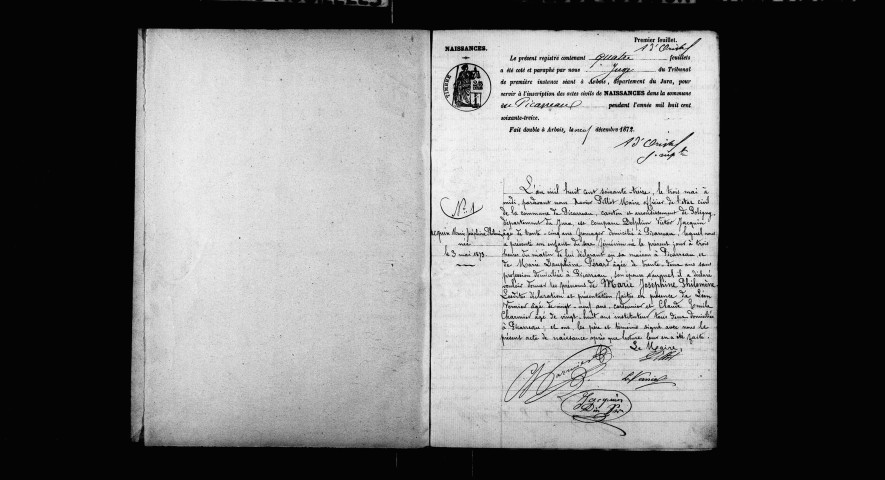 Premier feuillet.
NAISSANCES.
Le présent registre contenant quatre feuillets
a été coté et paraphé par nous Juge du Tribunal
de première instance séant à Arbois, département du Jura, pour
servir à l'inscription des actes civils de NAISSANCES dans la commune
de Picarreau pendant l'année mil huit cent
soixante-treize.
Fait double à Arbois, le neuf décembre 1872.
TIMBRE
L'an mil huit cent soixante treize, le trois mai à
midi, pardevant nous Xavier Pillot Maire officier de l'état civil
de la commune de Picarreau, canton et arrondissement de Poligny,
département du Jura, est comparu Delphin Victor Jacquin
âgé de trente-cinq ans, fromager domicilié à Picarreau, lequel nous
a présenté un enfant du sexe féminin né le présent jour à trois
heures du matin de lui déclarant en sa maison à Picarreau et
de Marie Dauphine Pérard âgée de trente deux ans sans
profession domiciliée à Picarreau, son épouse auquel il a déclaré
vouloir donner les prénoms de Marie Joséphine Philomène
Lesdites déclaration et présentation faites en présence de Léon
Vernier âgé de vingt-neuf ans, cantonnier et Claude Emile
Charnier âgé de vingt-huit ans instituteur tous deux domiciliés
à Picarreau; et ont, les père et témoins signé avec nous le
présent acte de naissance après que lecture leur en a été faite.
Le Maire
N° 1
Jacquin Marie Joséphine Philomène
née
le 3 mai 1873.
Pillot
L. Vernier
Jacquin